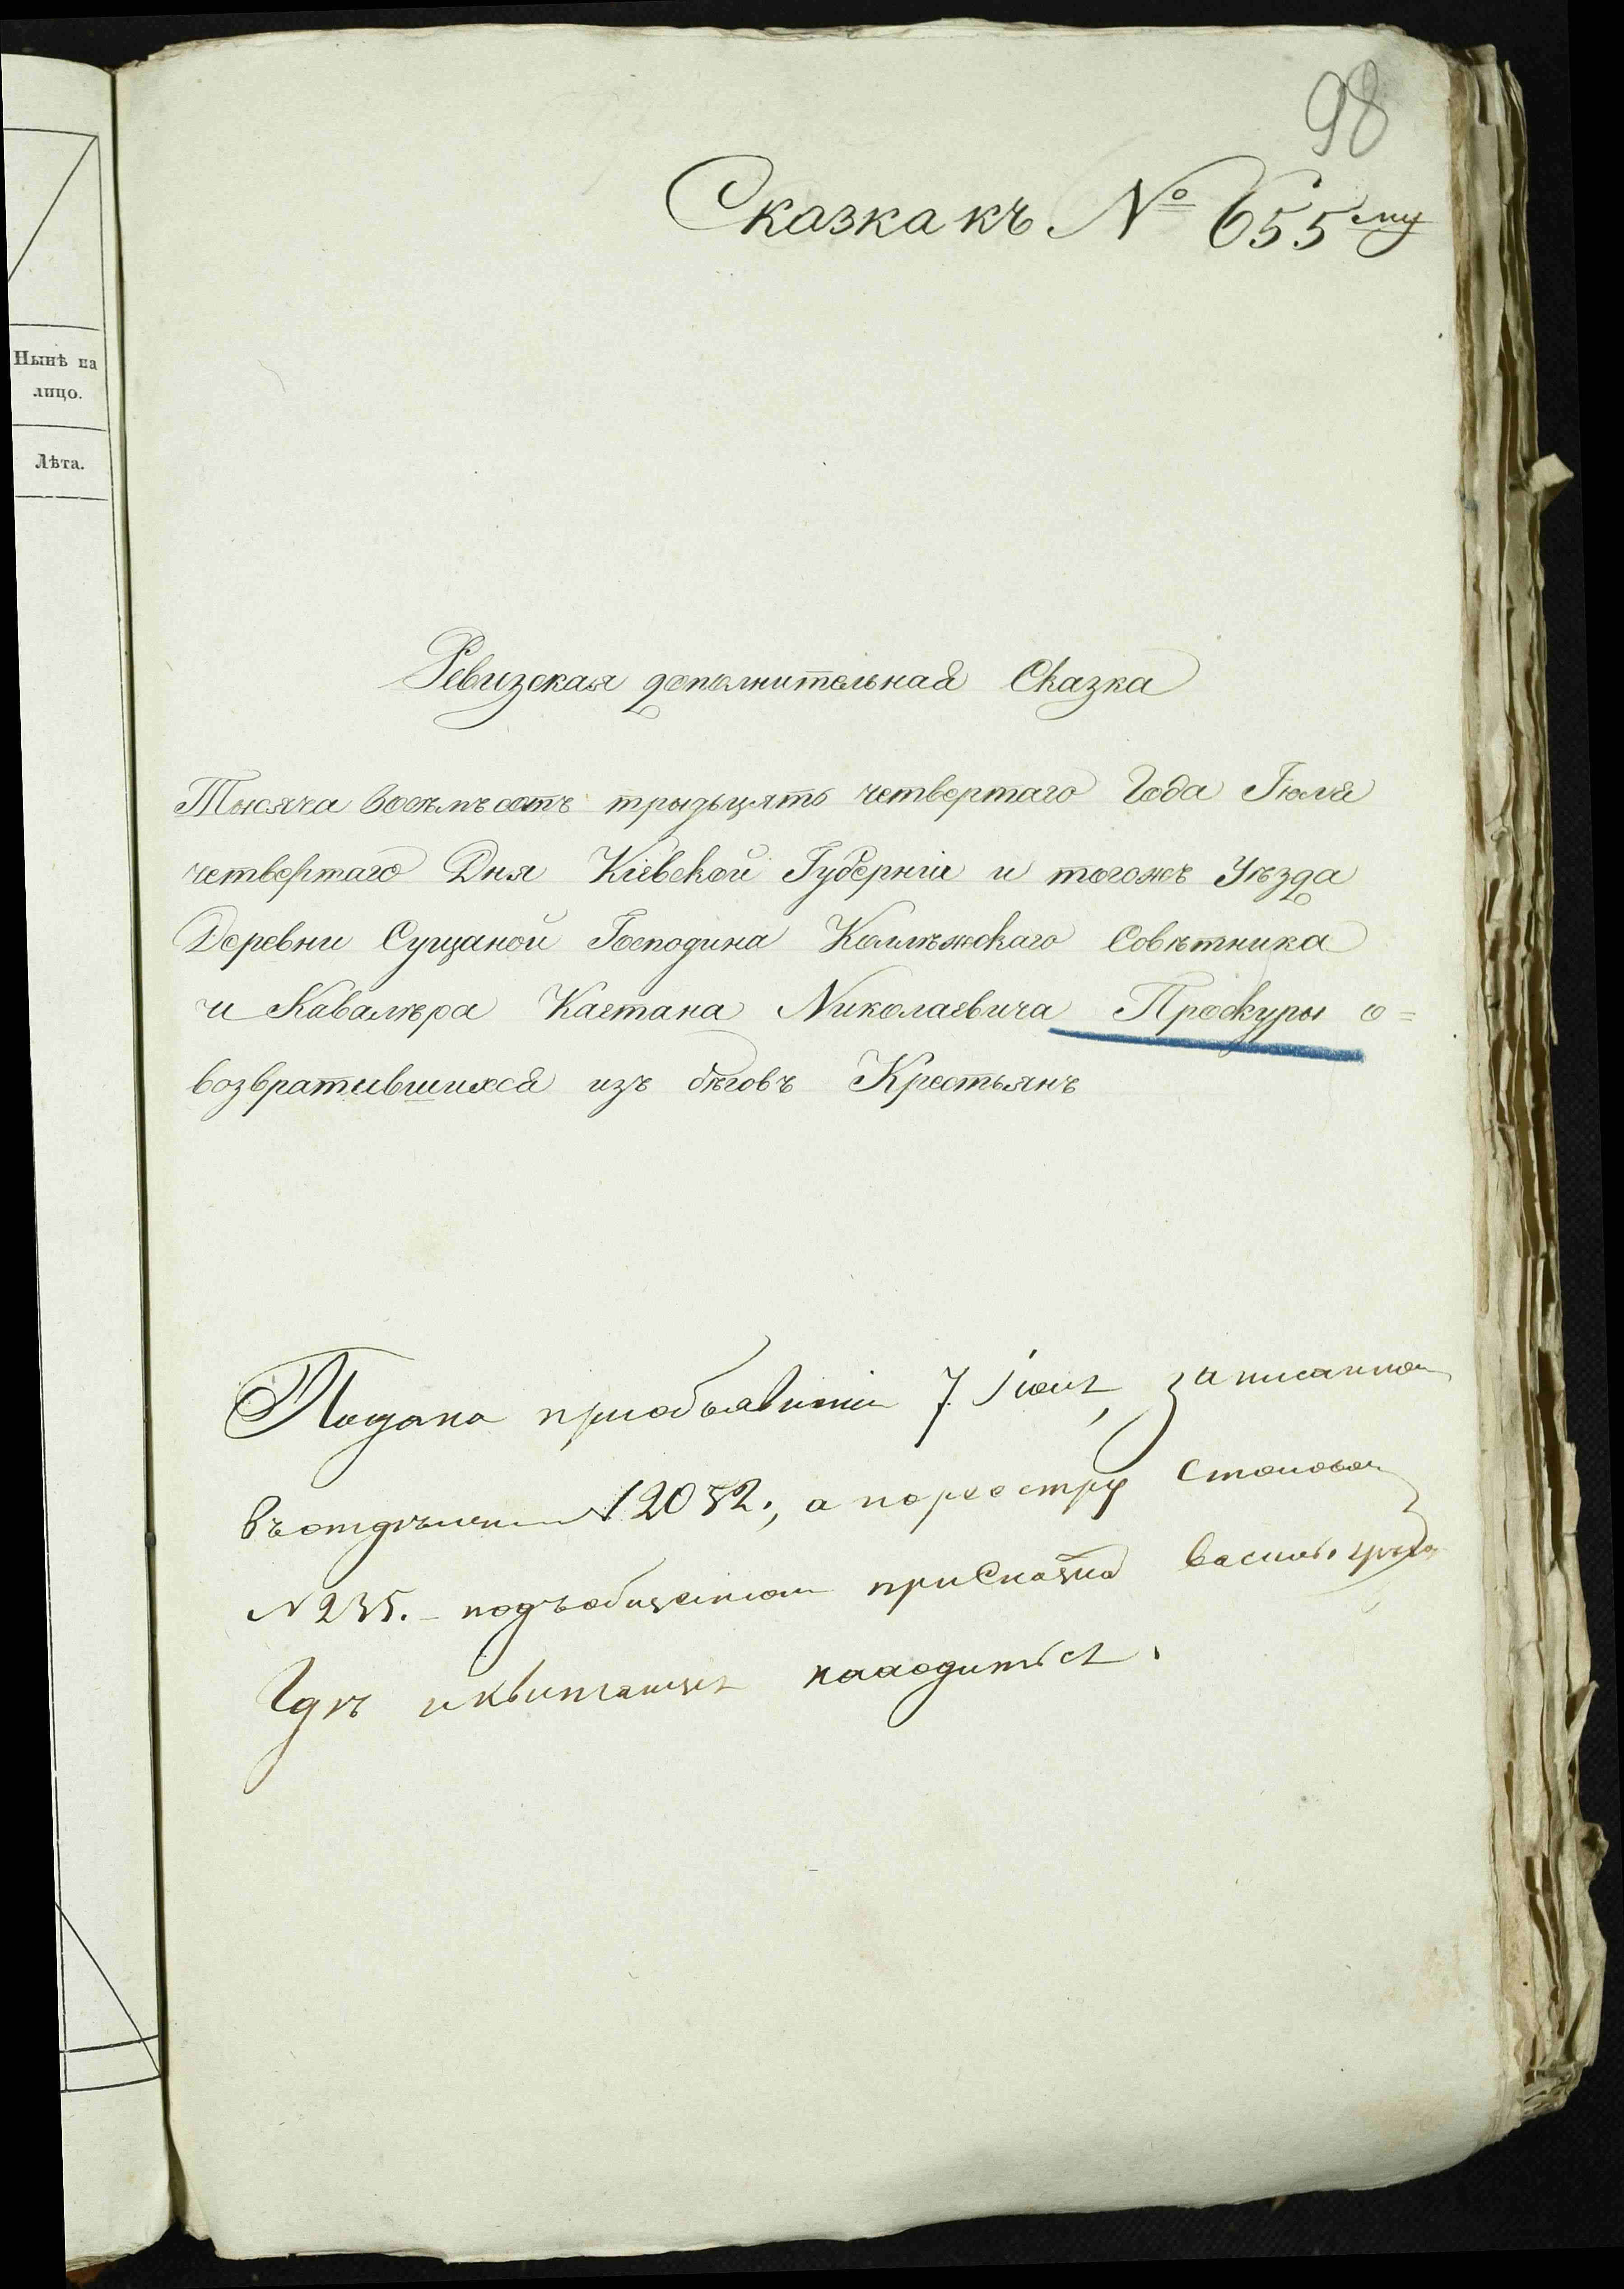 98
Сказка къ № 655му
Нынѣ на
лицо.
Лѣта.
Ревизская дополнительная Сказка
Тысяча восѣмъ сотъ трыдьцять четвертаго Года Іюля
четвертаго Дня Кіевской Губерніи и тогожъ Уѣзда
Деревни Сущаной Господина Коллѣжскаго Совѣтника
и Кавалѣра Каетана Николаевича Проскуры о=
возвратившихся изъ бѣговъ Крестьянъ
Подана приобъявленіи 7 Іюля, записанном
въ отделении N 12052., а по реестру
N 235. - подъ общетом при Сказка
Где и квитанция находиться.